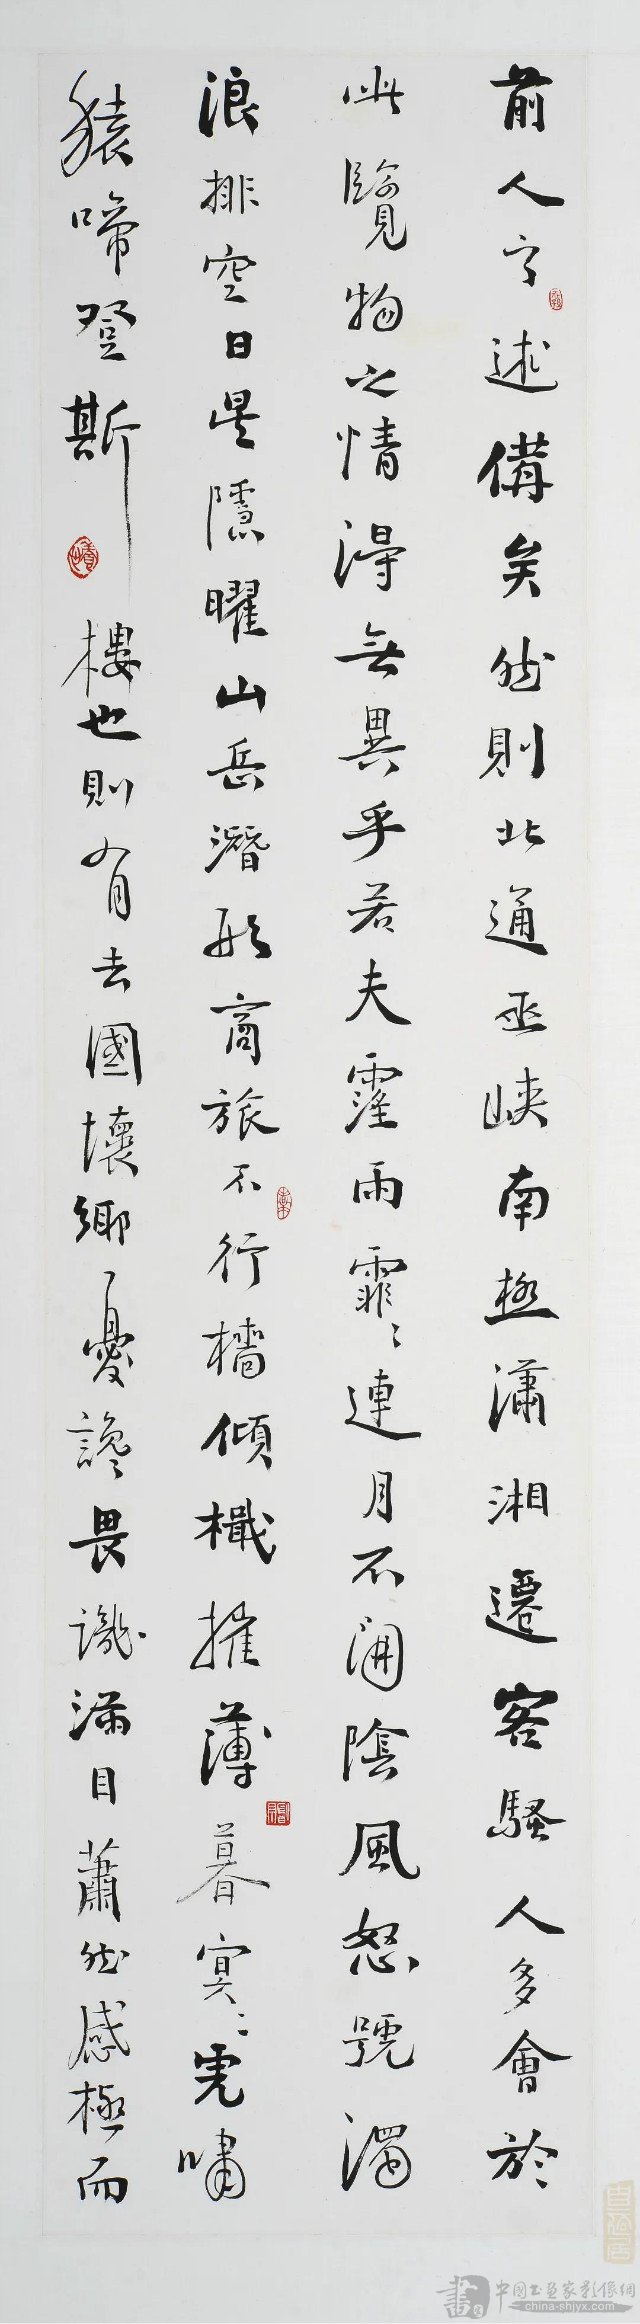 前人之述備矣然則北通巫峽南極瀟湘遷客騷人多會於
此覽物之情得無異乎若夫霪雨霏〻連月不開陰風怒號濁
浪排空日星隱曜山岳潛形商旅不行檣傾檝摧薄暮冥〻虎嘯
猿啼登斯樓也則有去國懷鄉憂讒畏譏滿目蕭然感極而
中國书画家影像網
china-shjyx.com